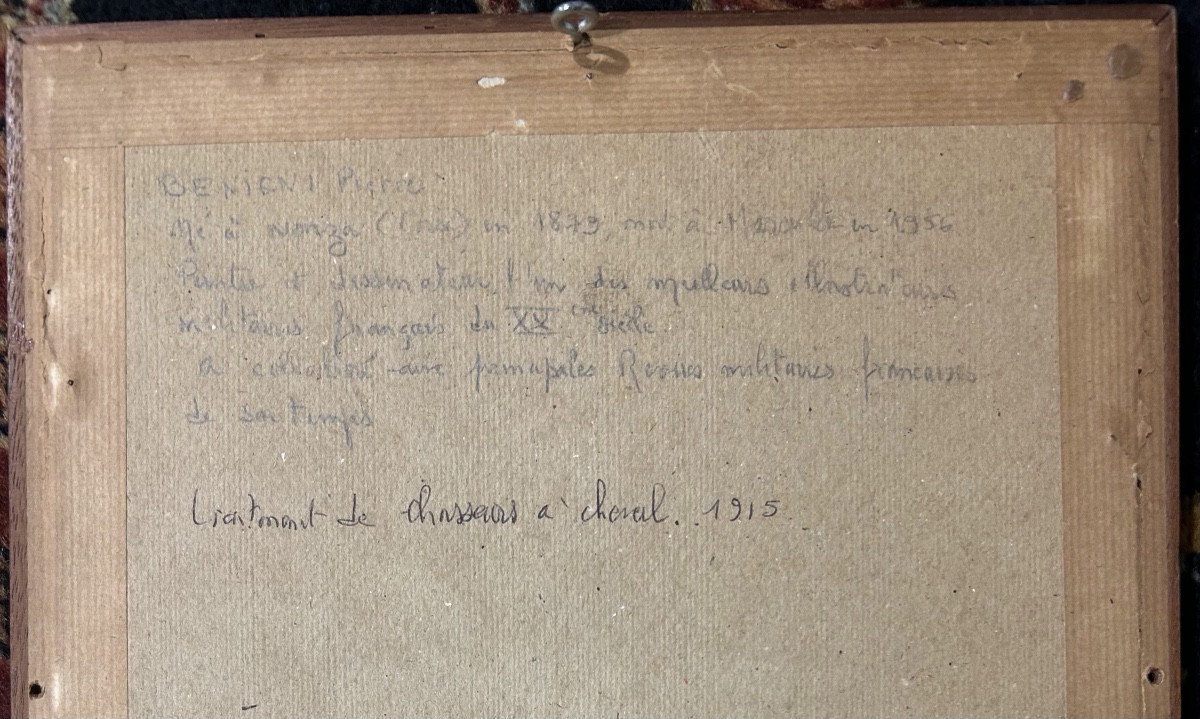 BENIGNI Pierre
Né à nonza (Corse) en 1879, mort à Marseille en 1956
Peintre et dessinateur, l'un des meilleurs illustrateurs
militaires français du XX ème siècle.
a collaboré aux principales Revues militaires françaises
de son temps
Lieutenant de chasseurs à cheval. 1915